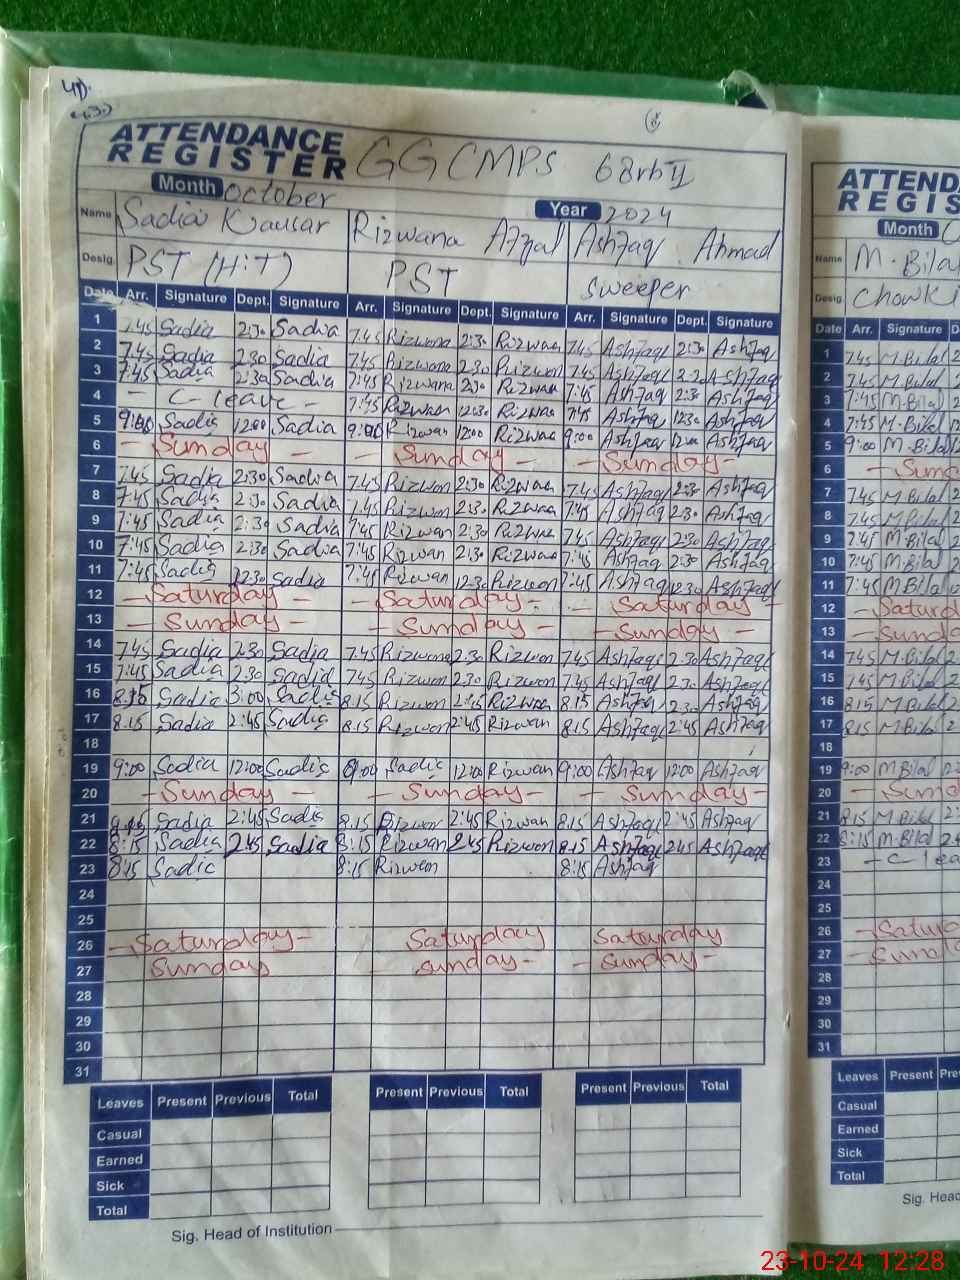 ATTENDANCE
REGISTER GGCMPS 68 rb II
Month October Year 2024
Name Sadia Kausar Rizwana Afzal Ashfaq Ahmad
Desig. PST (H.T) PST Sweeper
Date Arr. Signature Dept. Signature Arr. Signature Dept. Signature Arr. Signature Dept. Signature
1 7:45 Sadia 2:30 Sadia 7:45 Rizwana 2:30 Rizwan 7:45 Ashfaq 2:30 Ashfaq
2 7:45 Sadia 2:30 Sadia 7:45 Rizwana 2:30 Rizwan 7:45 Ashfaq 2:30 Ashfaq
3 7:45 Sadia 2:30 Sadia 7:45 Rizwana 2:30 Rizwan 7:45 Ashfaq 2:30 Ashfaq
4 - C-leave - 7:45 Rizwan 12:30 Rizwan 7:45 Ashfaq 12:30 Ashfaq
5 9:00 Sadia 12:00 Sadia 9:00 Rizwan 12:00 Rizwan 9:00 Ashfaq 12:00 Ashfaq
6 - Sunday - - Sunday - - Sunday -
7 7:45 Sadia 2:30 Sadia 7:45 Rizwan 2:30 Rizwan 7:45 Ashfaq 2:30 Ashfaq
8 7:45 Sadia 2:30 Sadia 7:45 Rizwan 2:30 Rizwan 7:45 Ashfaq 2:30 Ashfaq
9 7:45 Sadia 2:30 Sadia 7:45 Rizwan 2:30 Rizwan 7:45 Ashfaq 2:30 Ashfaq
10 7:45 Sadia 2:30 Sadia 7:45 Rizwan 2:30 Rizwan 7:45 Ashfaq 2:30 Ashfaq
11 7:45 Sadia 12:30 Sadia 7:45 Rizwan 12:30 Rizwan 7:45 Ashfaq 12:30 Ashfaq
12 - Saturday - - Saturday - - Saturday -
13 - Sunday - - Sunday - - Sunday -
14 7:45 Sadia 2:30 Sadia 7:45 Rizwana 2:30 Rizwan 7:45 Ashfaq 2:30 Ashfaq
15 7:45 Sadia 2:30 Sadia 7:45 Rizwan 2:30 Rizwan 7:45 Ashfaq 2:30 Ashfaq
16 8:15 Sadia 3:00 Sadia 8:15 Rizwan 2:45 Rizwan 8:15 Ashfaq 2:30 Ashfaq
17 8:15 Sadia 2:45 Sadia 8:15 Rizwan 2:45 Rizwan 8:15 Ashfaq 2:45 Ashfaq
18
19 9:00 Sadia 12:00 Sadia 9:00 Sadia 12:00 Rizwan 9:00 Ashfaq 12:00 Ashfaq
20 - Sunday - - Sunday - - Sunday -
21 Sadia 2:45 Sadia 8:15 Rizwan 2:45 Rizwan 8:15 Ashfaq 2:45 Ashfaq
22 8:15 Sadia 2:45 Sadia 8:15 Rizwan 2:45 Rizwan 8:15 Ashfaq 2:45 Ashfaq
23 8:15 Sadia 8:15 Rizwan 8:15 Ashfaq
24
25
26 - Saturday - Saturday Saturday
27 Sunday - Sunday - - Sunday -
28
29
30
31
Leaves Present Previous Total Present Previous Total Present Previous Total
Casual
Earned
Sick
Total
Sig. Head of Institution
ATTEND
REGIS
Month
Name M. Bilal
Desig. Chowki
Date Arr. Signature
1 7:45 M.Bilal 2
2 7:45 M.Bilal 2
3 7:45 M.Bilal 2
4 7:45 M.Bilal
5 9:00 M.Bilal
6 - Sun
7 7:45 M.Bilal 2
8 7:45 M.Bilal 2
9 7:45 M.Bilal 2
10 7:45 M.Bilal 2
11 7:45 M.Bilal
12 - Saturd
13 - Sunda
14 7:45 M.Bilal 2
15 7:45 M.Bilal 2
16 8:15 M.Bilal 2
17 8:15 M.Bilal 2
18
19 9:00 M.Bilal
20 - Sund
21 8:15 M.Bilal 2
22 8:15 M.Bilal 2:4
23 - C-lea
24
25
26 - Satur
27 - Sund
28
29
30
31
Leaves Present Pre
Casual
Earned
Sick
Total
Sig. Head
23-10-24 12:28